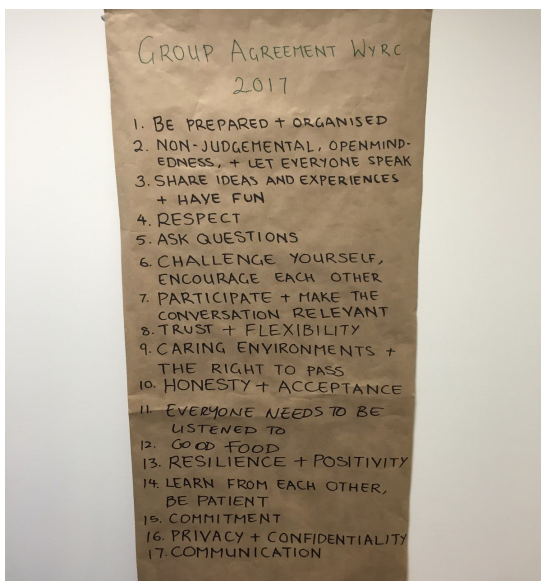 GROUP AGREEMENT WYRC
2017
1. BE PREPARED + ORGANISED
2. NON-JUDGEMENTAL, OPENMIND-
EDNESS, + LET EVERYONE SPEAK
3. SHARE IDEAS AND EXPERIENCES
+ HAVE FUN
4. RESPECT
5. ASK QUESTIONS
6. CHALLENGE YOURSELF,
ENCOURAGE EACH OTHER
7. PARTICIPATE + MAKE THE
CONVERSATION RELEVANT
8. TRUST + FLEXIBILITY
9. CARING ENVIRONMENTS +
THE RIGHT TO PASS
10. HONESTY + ACCEPTANCE
11. EVERYONE NEEDS TO BE
LISTENED TO
12. GOOD FOOD
13. RESILIENCE + POSITIVITY
14. LEARN FROM EACH OTHER,
BE PATIENT
15. COMMITMENT
16. PRIVACY + CONFIDENTIALITY
17. COMMUNICATION